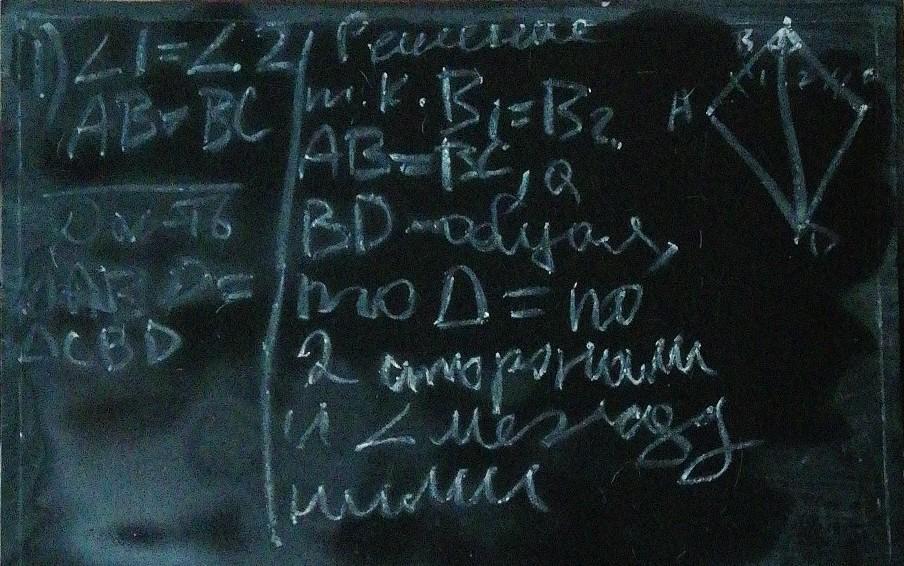 1) ∠1=∠2
AB=BC
Док-ть
ΔABD=
ΔCBD
Решение
т.к. B₁=B₂,
AB=BC, a
BD-общая,
то Δ= по
2 сторонам
и ∠ между
ними
B
1 2
A
D